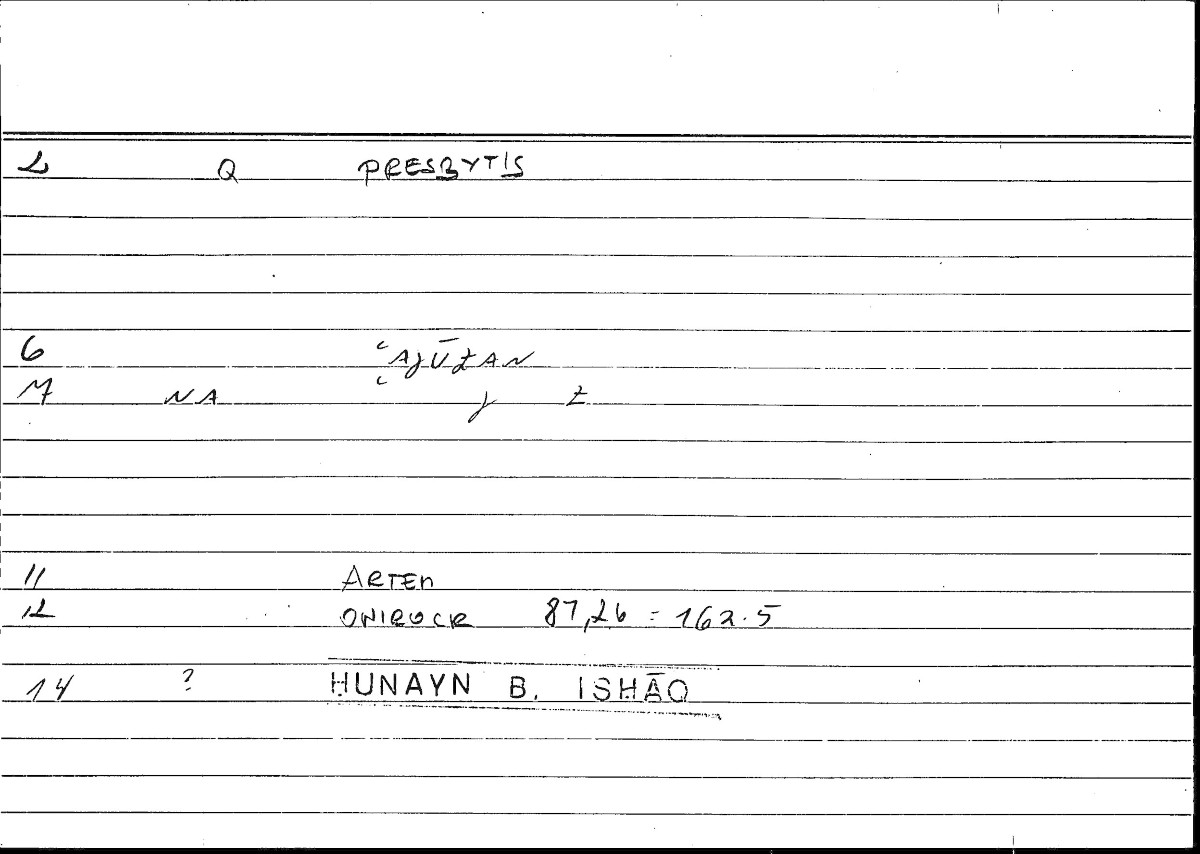 2 Q PRESBYTIS
6 ʿAJŪZAN
M NA ʿ J Z
11 ARTEM
12 ONIROCR 87,26 = 162.5
14 ? HUNAYN B. ISHĀQ